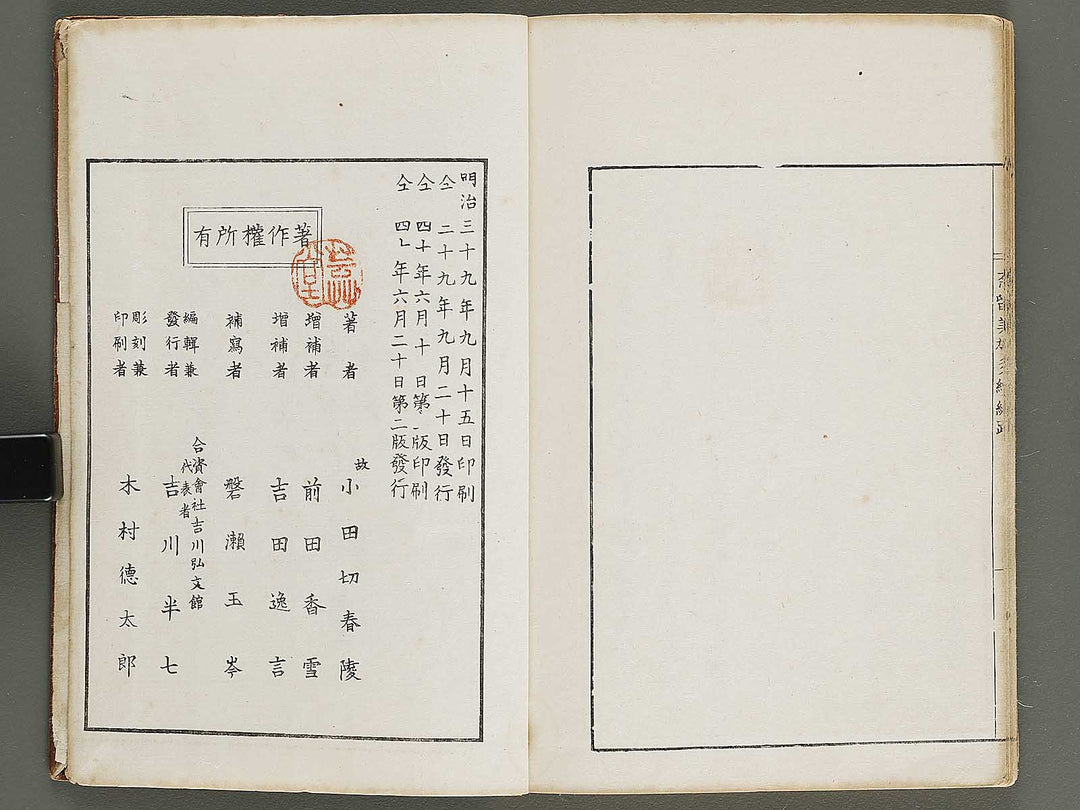 明治三十九年九月十五日印刷
仝 二十九年九月二十日發行
仝 四十年六月十日第二版印刷
仝 四十年六月二十日第二版發行
著作權所有
著者 故 小田切春陵
增補者 前田香雪
增補者 吉田逸言
補寫者 磐瀬玉岑
編輯兼
發行者
合資會社吉川弘文館
代表者
吉川半七
彫刻兼
印刷者
木村德太郎